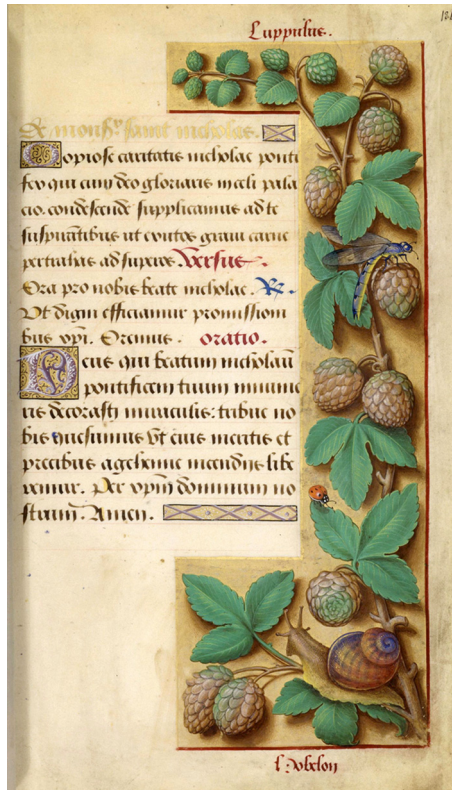 Luppulus.
De mons.r saint nicholas.
Copiose caritatis nicholae ponti
fex qui cum deo gloriaris in celi pala
cio. condescende supplicamus ad te
suspirantibus ut exutos gravi carne
pertrahas ad superos. Versus.
Ora pro nobis beate nicholae. R.
Ut digni efficiamur promissioni
bus xpi. Oremus. oratio.
Deus qui beatum nicholau
pontificem tuum innume
ris decorasti miraculis: tribue no
bis quesumus ut eius meritis et
precibus a gehenne incendiis libe
remur. Per xpm dominum no
strum. Amen.
l'obelon